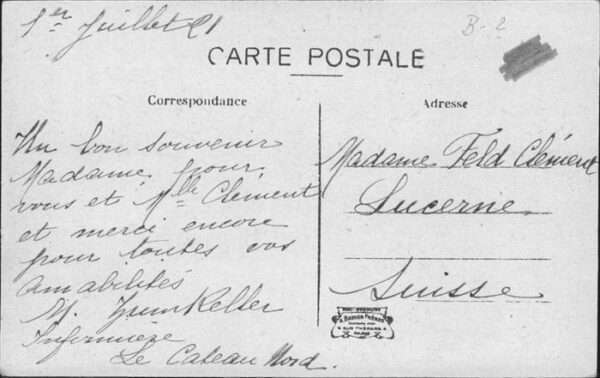 1er Juillet 21
B-2
CARTE POSTALE
Correspondance
Adresse
Un bon souvenir
Madame pour
vous et Mlle Clément
et merci encore
pour toutes vos
amabilités
M. Zumkeller
Infirmière
Le Cateau Nord.
Madame Feld Clément
Lucerne
Suisse